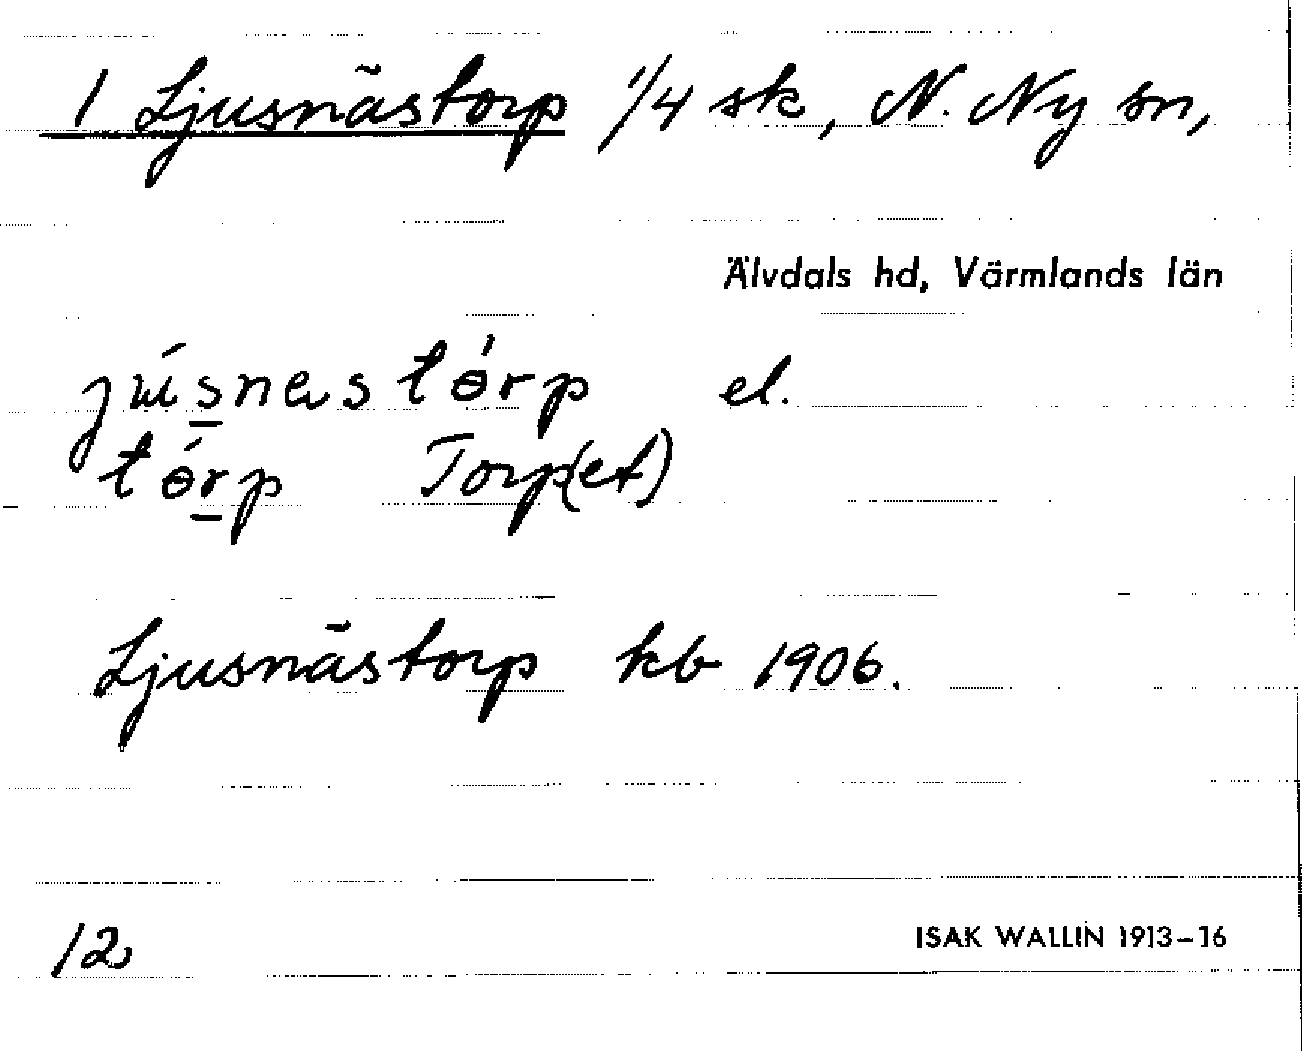 1 Ljusnästorp 1/4 sk, N. Ny sn,
Älvdals hd, Värmlands län
júsnastórp el.
tórp Torp(et)
Ljusnästorp kb 1906.
12 ISAK WALLIN 1913–16